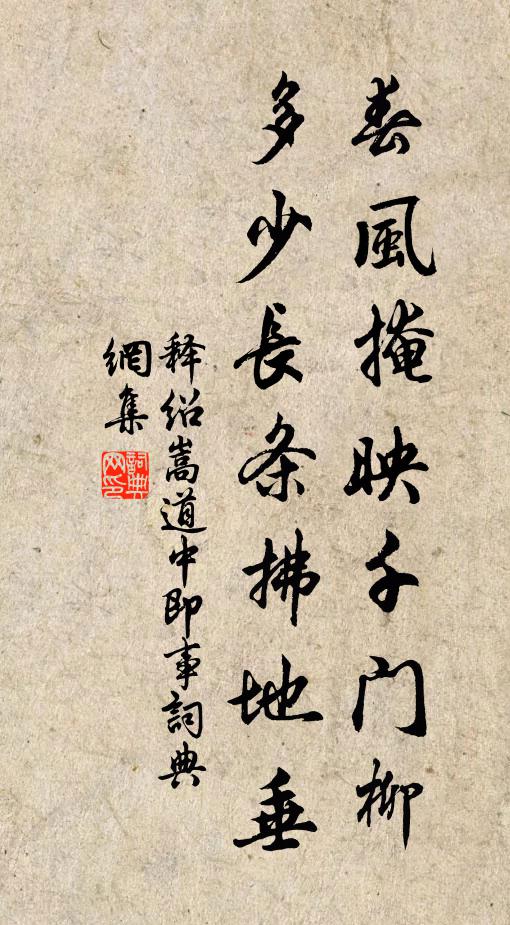 春風掩映千門柳
多少長条拂地垂
释绍嵩道中即事詞典
網集
詞典
网印